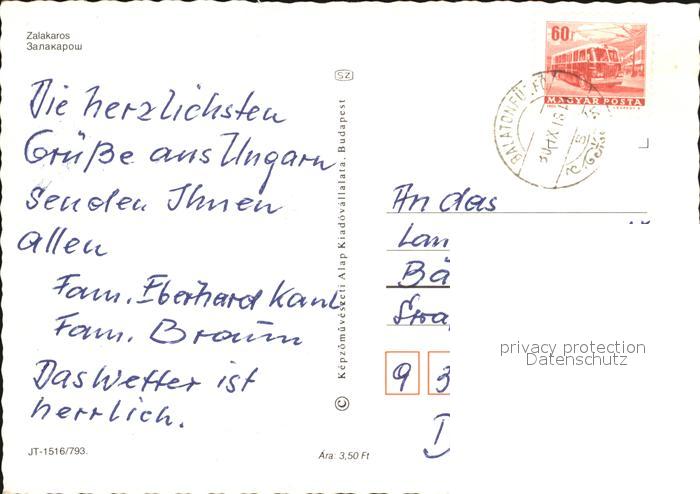 Zalakaros
Залакарош
Die herzlichsten
Grüße aus Ungarn
senden Ihnen
allen
Fam. Eberhard
Fam. Braun
Das Wetter ist
herrlich.
JT-1516/793.
Ára: 3,50 Ft
SZ
© Képzőművészeti Alap Kiadóvállalata, Budapest
60f
MAGYAR POSTA
An das
Lan
Bä
9 3
D
privacy protection
Datenschutz